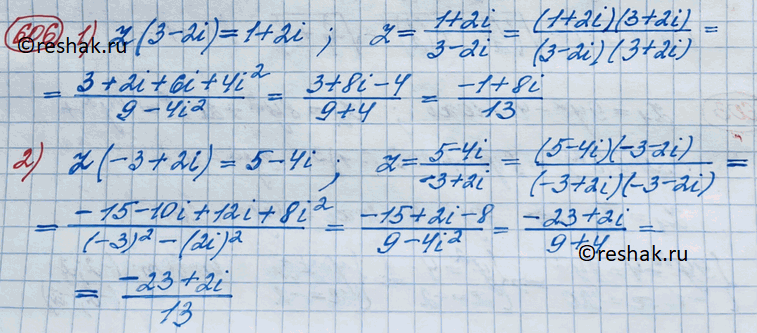 606 1) z(3-2i)=1+2i ; z = (1+2i)/(3-2i) = ((1+2i)(3+2i))/((3-2i)(3+2i)) =
= (3+2i+6i+4i²)/(9-4i²) = (3+8i-4)/(9+4) = (-1+8i)/13
©reshak.ru
2) z(-3+2i)=5-4i ; z = (5-4i)/(-3+2i) = ((5-4i)(-3-2i))/((-3+2i)(-3-2i)) =
= (-15-10i+12i+8i²)/((-3)²-(2i)²) = (-15+2i-8)/(9-4i²) = (-23+2i)/(9+4) =
©reshak.ru
= (-23+2i)/13